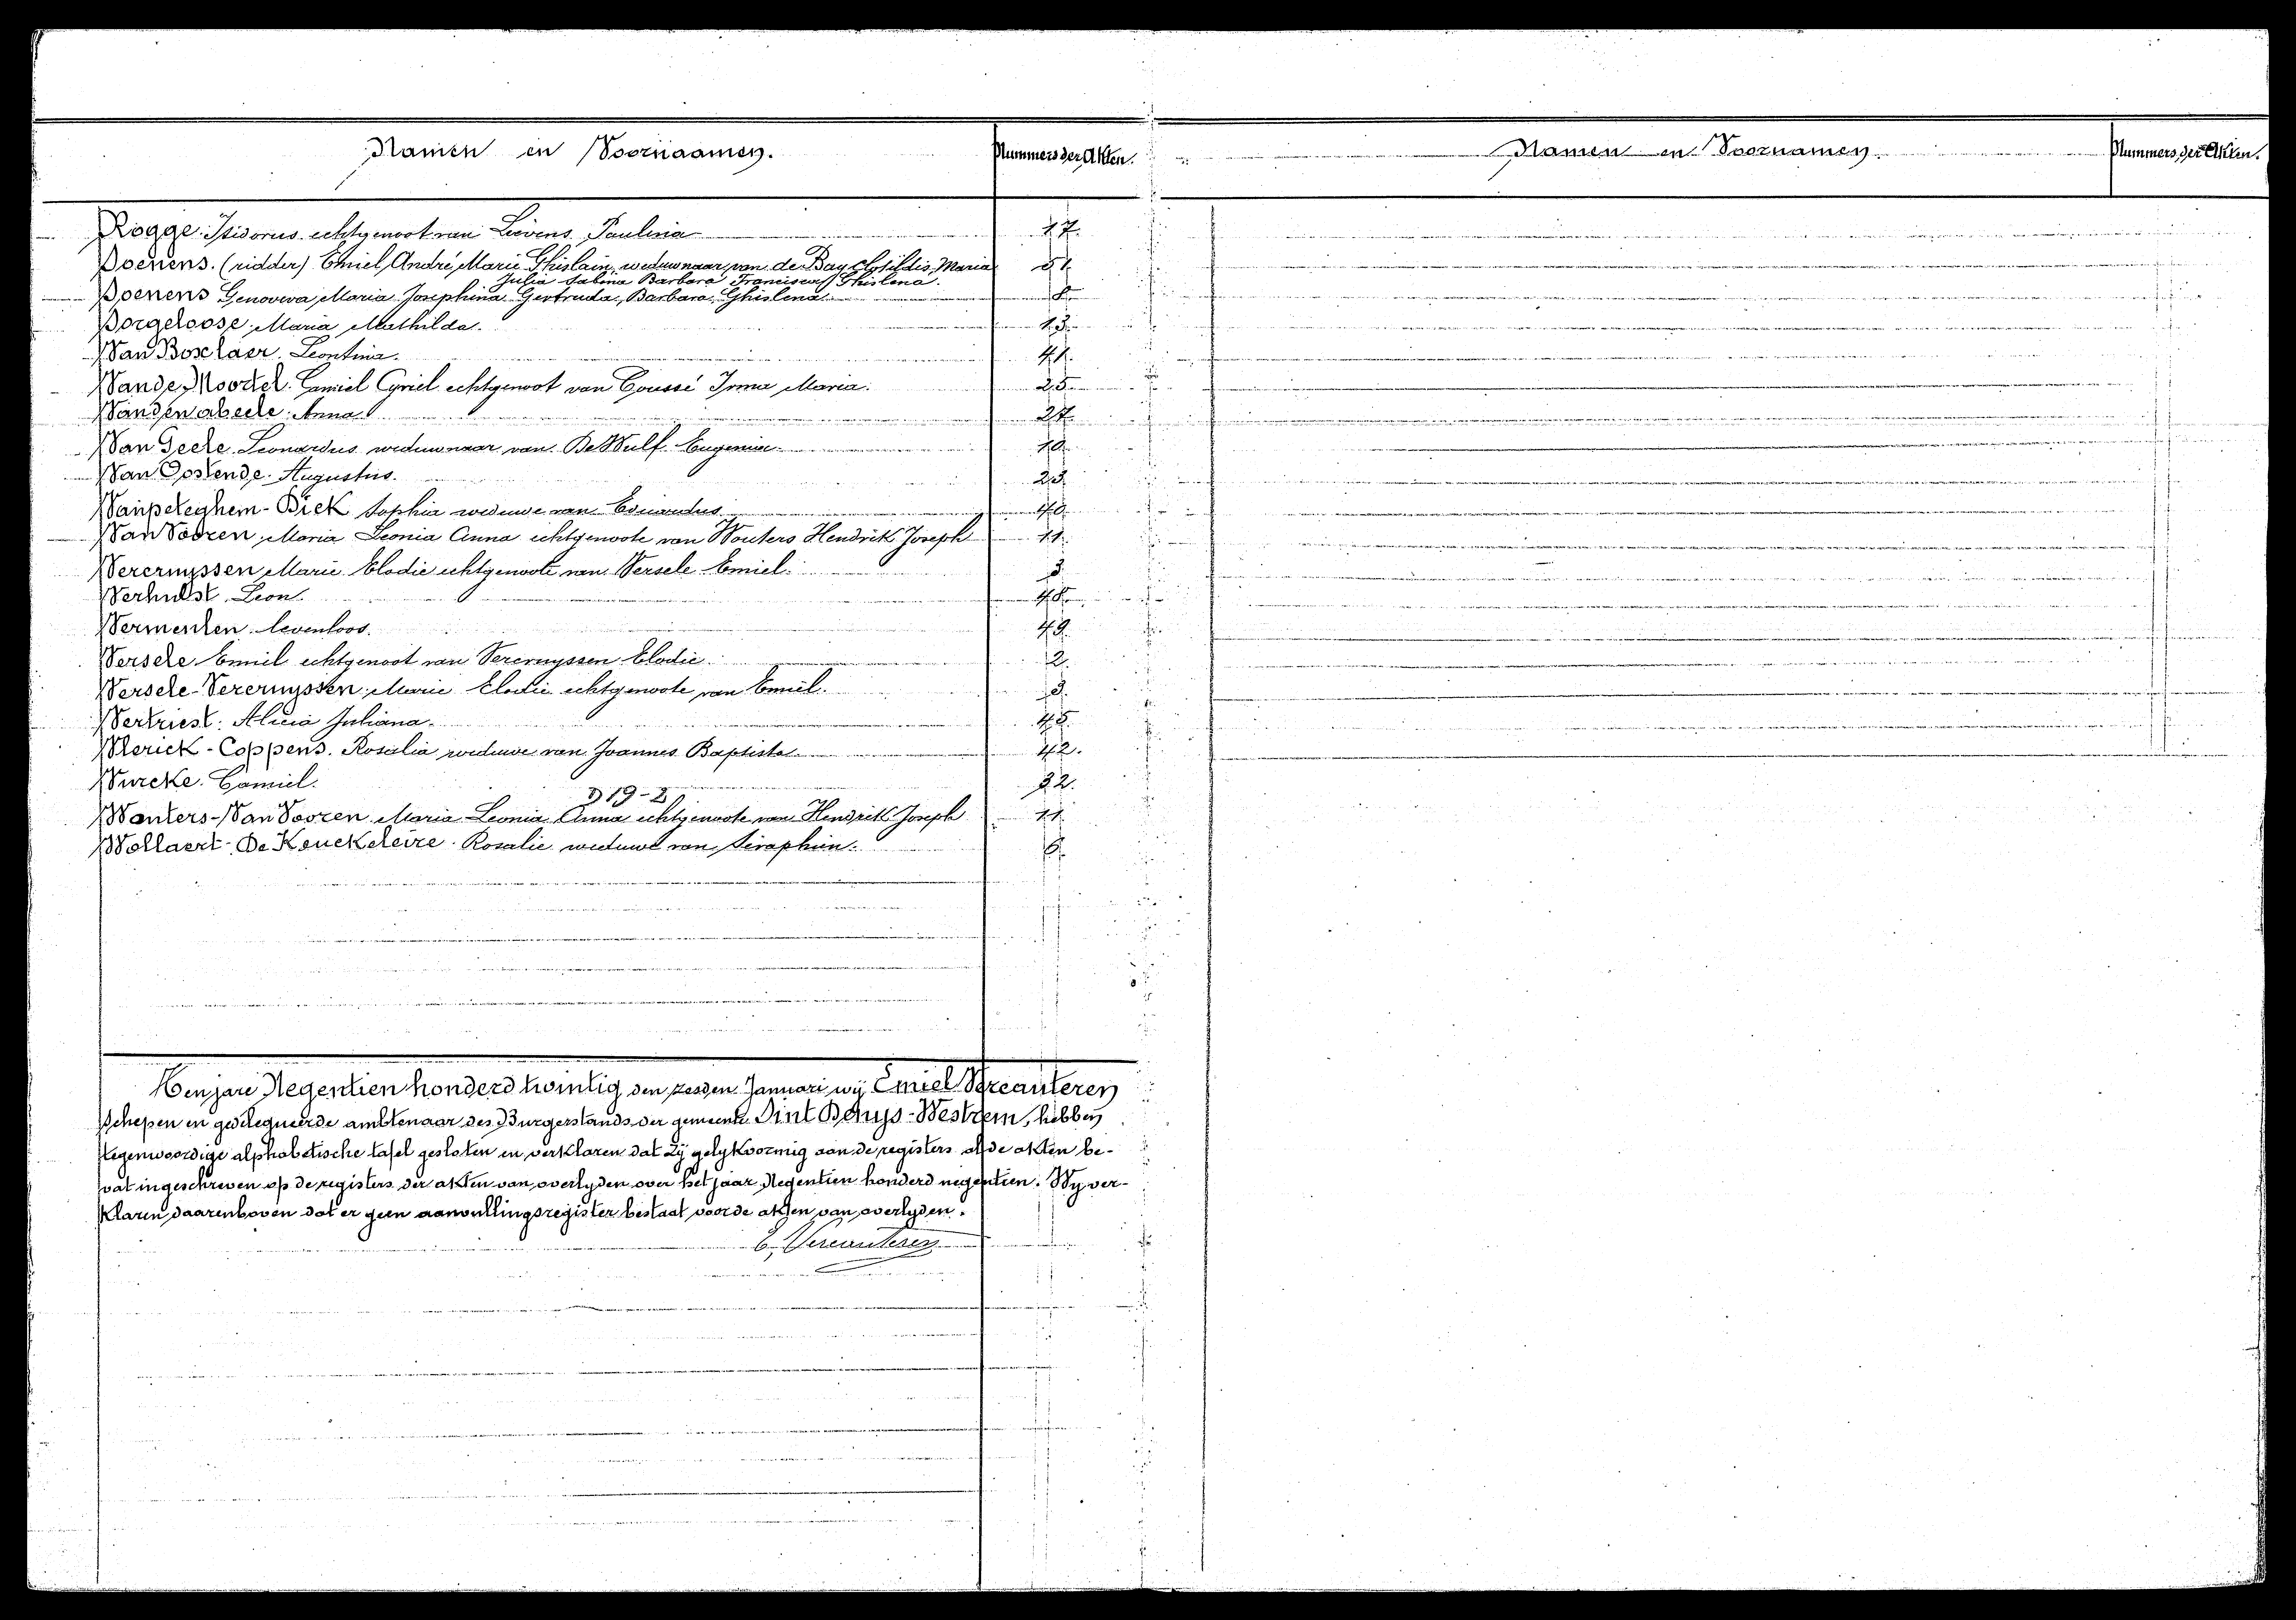 Namen en Voornaamen. Nummers der Akten. Namen en Voornamen. Nummers der Akten.
Rogge. Isidorus. echtgenoot van Lievens Paulina 17.
Soenens. (ridder) Emiel, André, Marie Ghislain, weduwnaar van de Bay Maria
Julia Sabina Barbara Francisca Ghislena.
Soenens Genoveva, Maria Josephina Gertruda, Barbara, Ghislena.
Sorgeloose. Maria Mathilda.
Van Boxelaer. Leontina.
Vande Moortel. Camiel Cyriel echtgenoot van Coussé Irma Maria.
Vandenabeele. Anna
Van Geete. Leonardus weduwnaar van De Wulf Eugenia
Van Oostende. Augustus.
Vanpeteghem-Bick Sophia weduwe van Eduardus
Van Vooren. Maria Leonia Anna echtgenoote van Wouters Hendrik Joseph 11.
Verernyssen Marie Elodie echtgenoote van Versele Emiel.
Verhulst. Leon.
Vermeulen. levenloos.
Versele Emiel echtgenoot van Verernyssen Elodie. 2.
Versele-Verernyssen. Marie Elodie echtgenoote van Emiel.
Vertriest. Alicia Juliana.
Vlerick-Coppens. Rosalia weduwe van Joannes Baptista 42.
Vurcke. Camiel.
D 19-2
Wauters-Van Vooren. Maria Leonia Anna echtgenoote van Hendrik Joseph 11.
Wollaert-De Keuckeleire. Rosalie weduwe van Seraphien.
Ten jare Negentien honderd twintig den Januari wij Emiel Vercauteren
Schepen en gedelegueerde ambtenaar des Burgerstands der gemeente Sint Denys-Westrem, hebben
tegenwoordige alphabetische tafel gesloten en verklaren dat zij gelykvormig aan de registers al de akten be-
vat ingeschreven op de registers der akten van overlyden over het jaar Negentien honderd negentien. Wy ver-
klaren daarenboven dat er geen aanvullingsregister bestaat voor de akten van overlyden.
E. Vercauteren